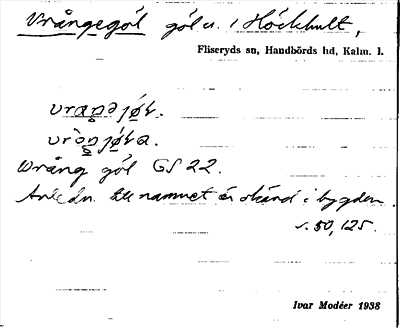 Vrångegöl göl u. i Höckhult,
Fliseryds sn, Handbörds hd, Kalm. l.
Wrång göl GS 22.
Anledn. till namnet är okänd i bygden.
s. 50, 125.
Ivar Modéer 1938